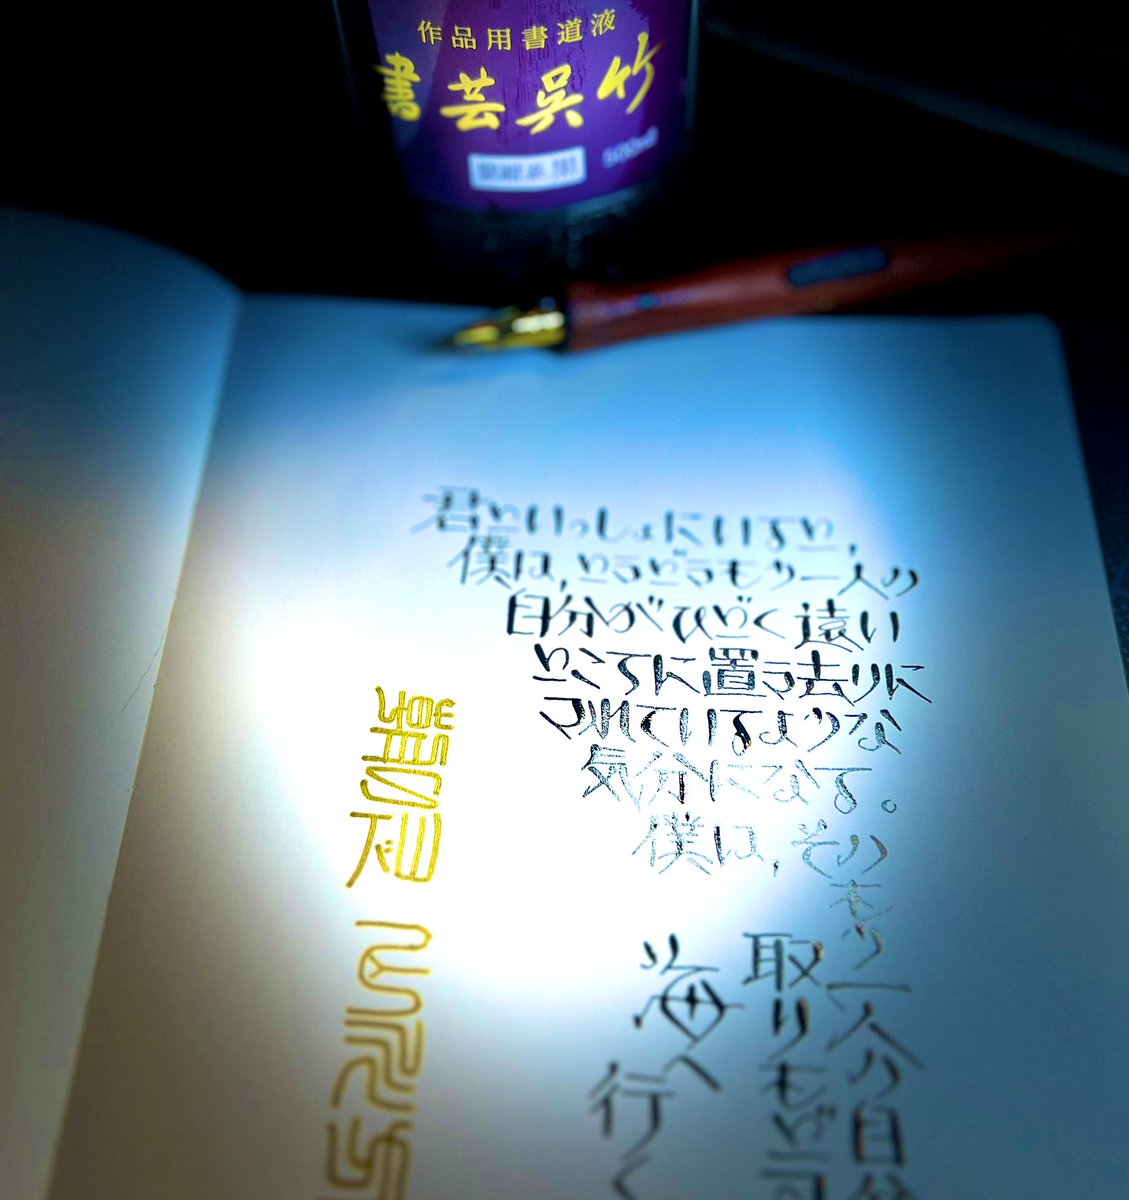 作品用書道液
書芸呉竹
500ml
君といっしょにいると,
僕は,ときどきもう一人の
自分がひどく遠い
ところに置き去りに
されているような
気分になる。
僕は,そのもう一人の自分
取りもど
海へ行く